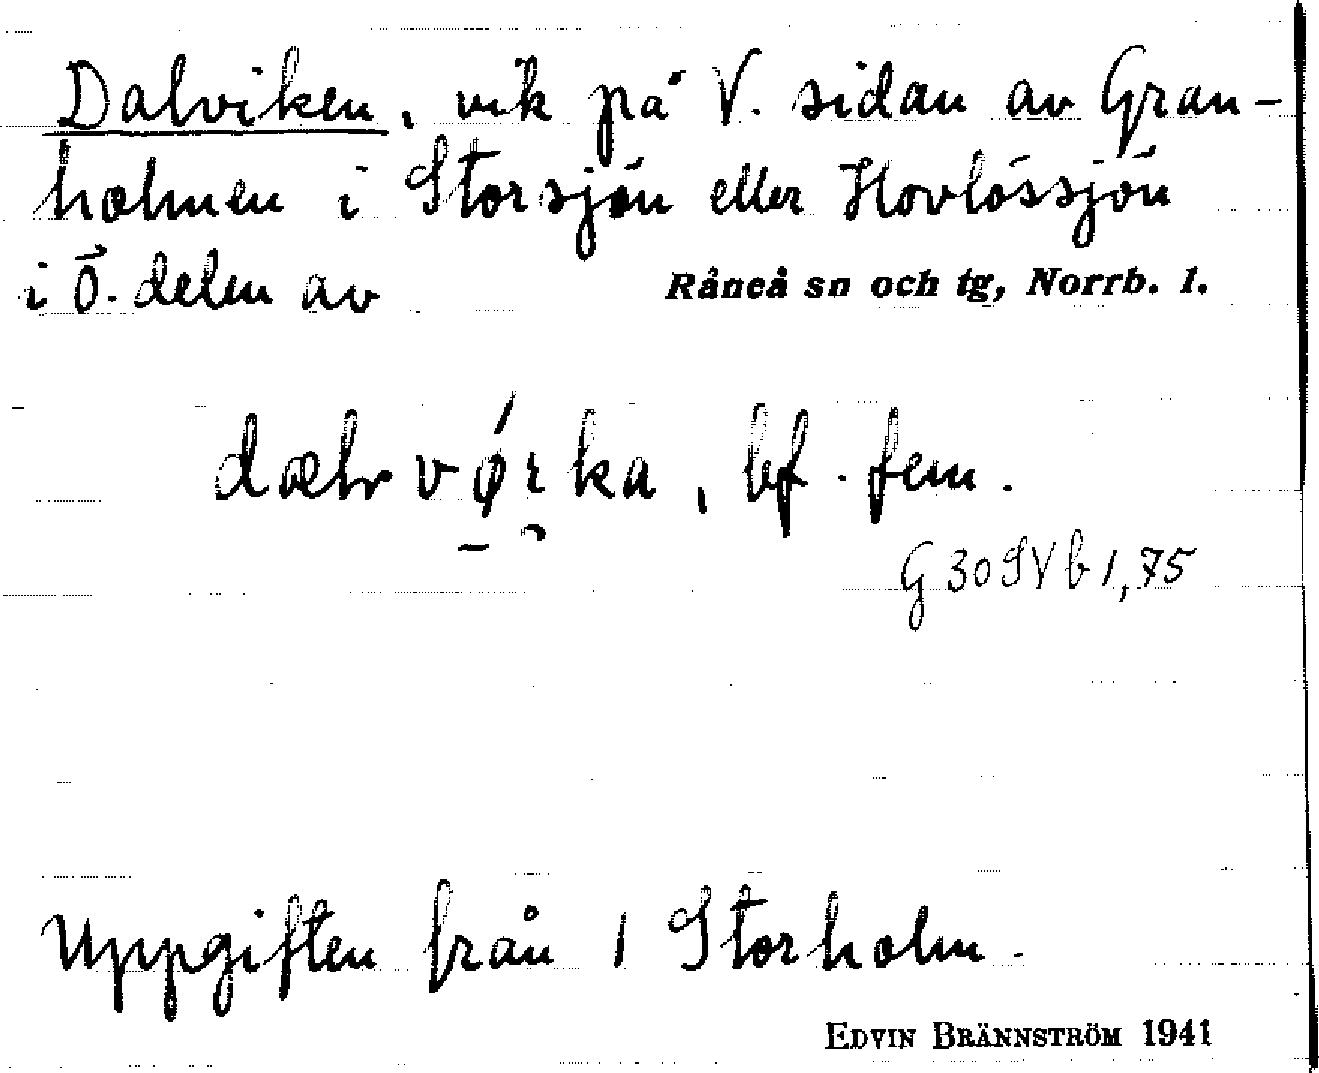 Dalviken, vik på V. sidan av Gran-
holmen i Storsjön eller Hovlössjön
i Ö. delen av Råneå sn och tg, Norrb. l.
bf. fem.
G 30 SV b 1, 75
Uppgiften från 1 Storholm.
EDVIN BRÄNNSTRÖM 1941